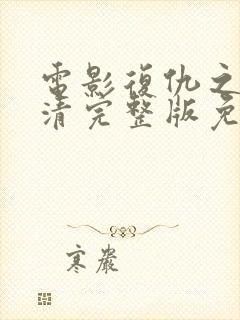 電影復仇之
清完整版免
寒嚴